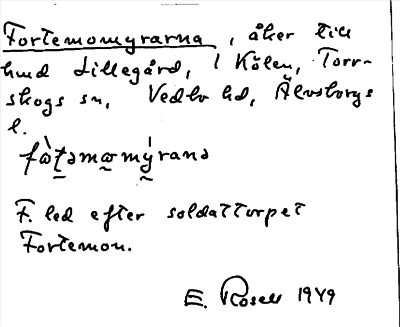 Fortemomyrarna, åker till
hmd Lillegård, i Kölen, Torr-
skogs sn, Vedbo hd, Älvsborgs
l.
fò̀ṯəmɷmý̰ranə
F. led efter soldattorpet
Fortemon.
E. Rosell 1949